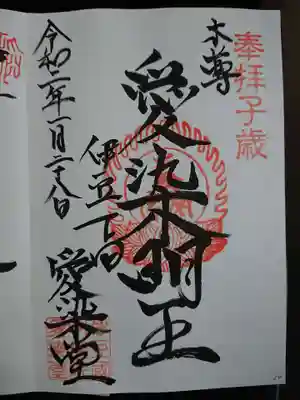 奉拝子歳
本尊
愛染明王
伊豆下田
愛染堂
令和二年一月二十八日